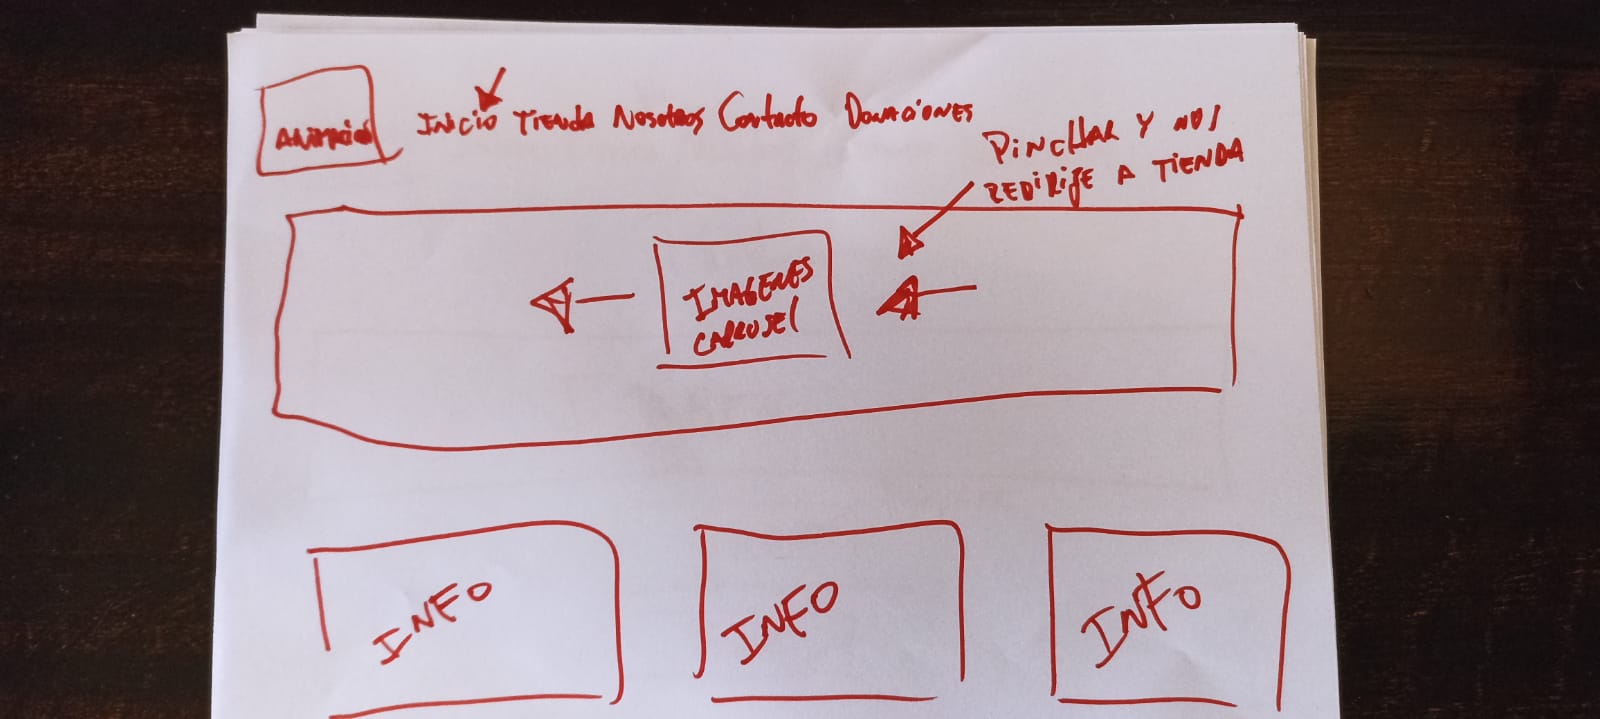 INICIO TIENDA NOSOTROS Contacto DONACIONES
PINCHAR Y NOS
REDIRIJE A TIENDA
IMAGENES
CARRUSEL
INFO
INFO
INFO